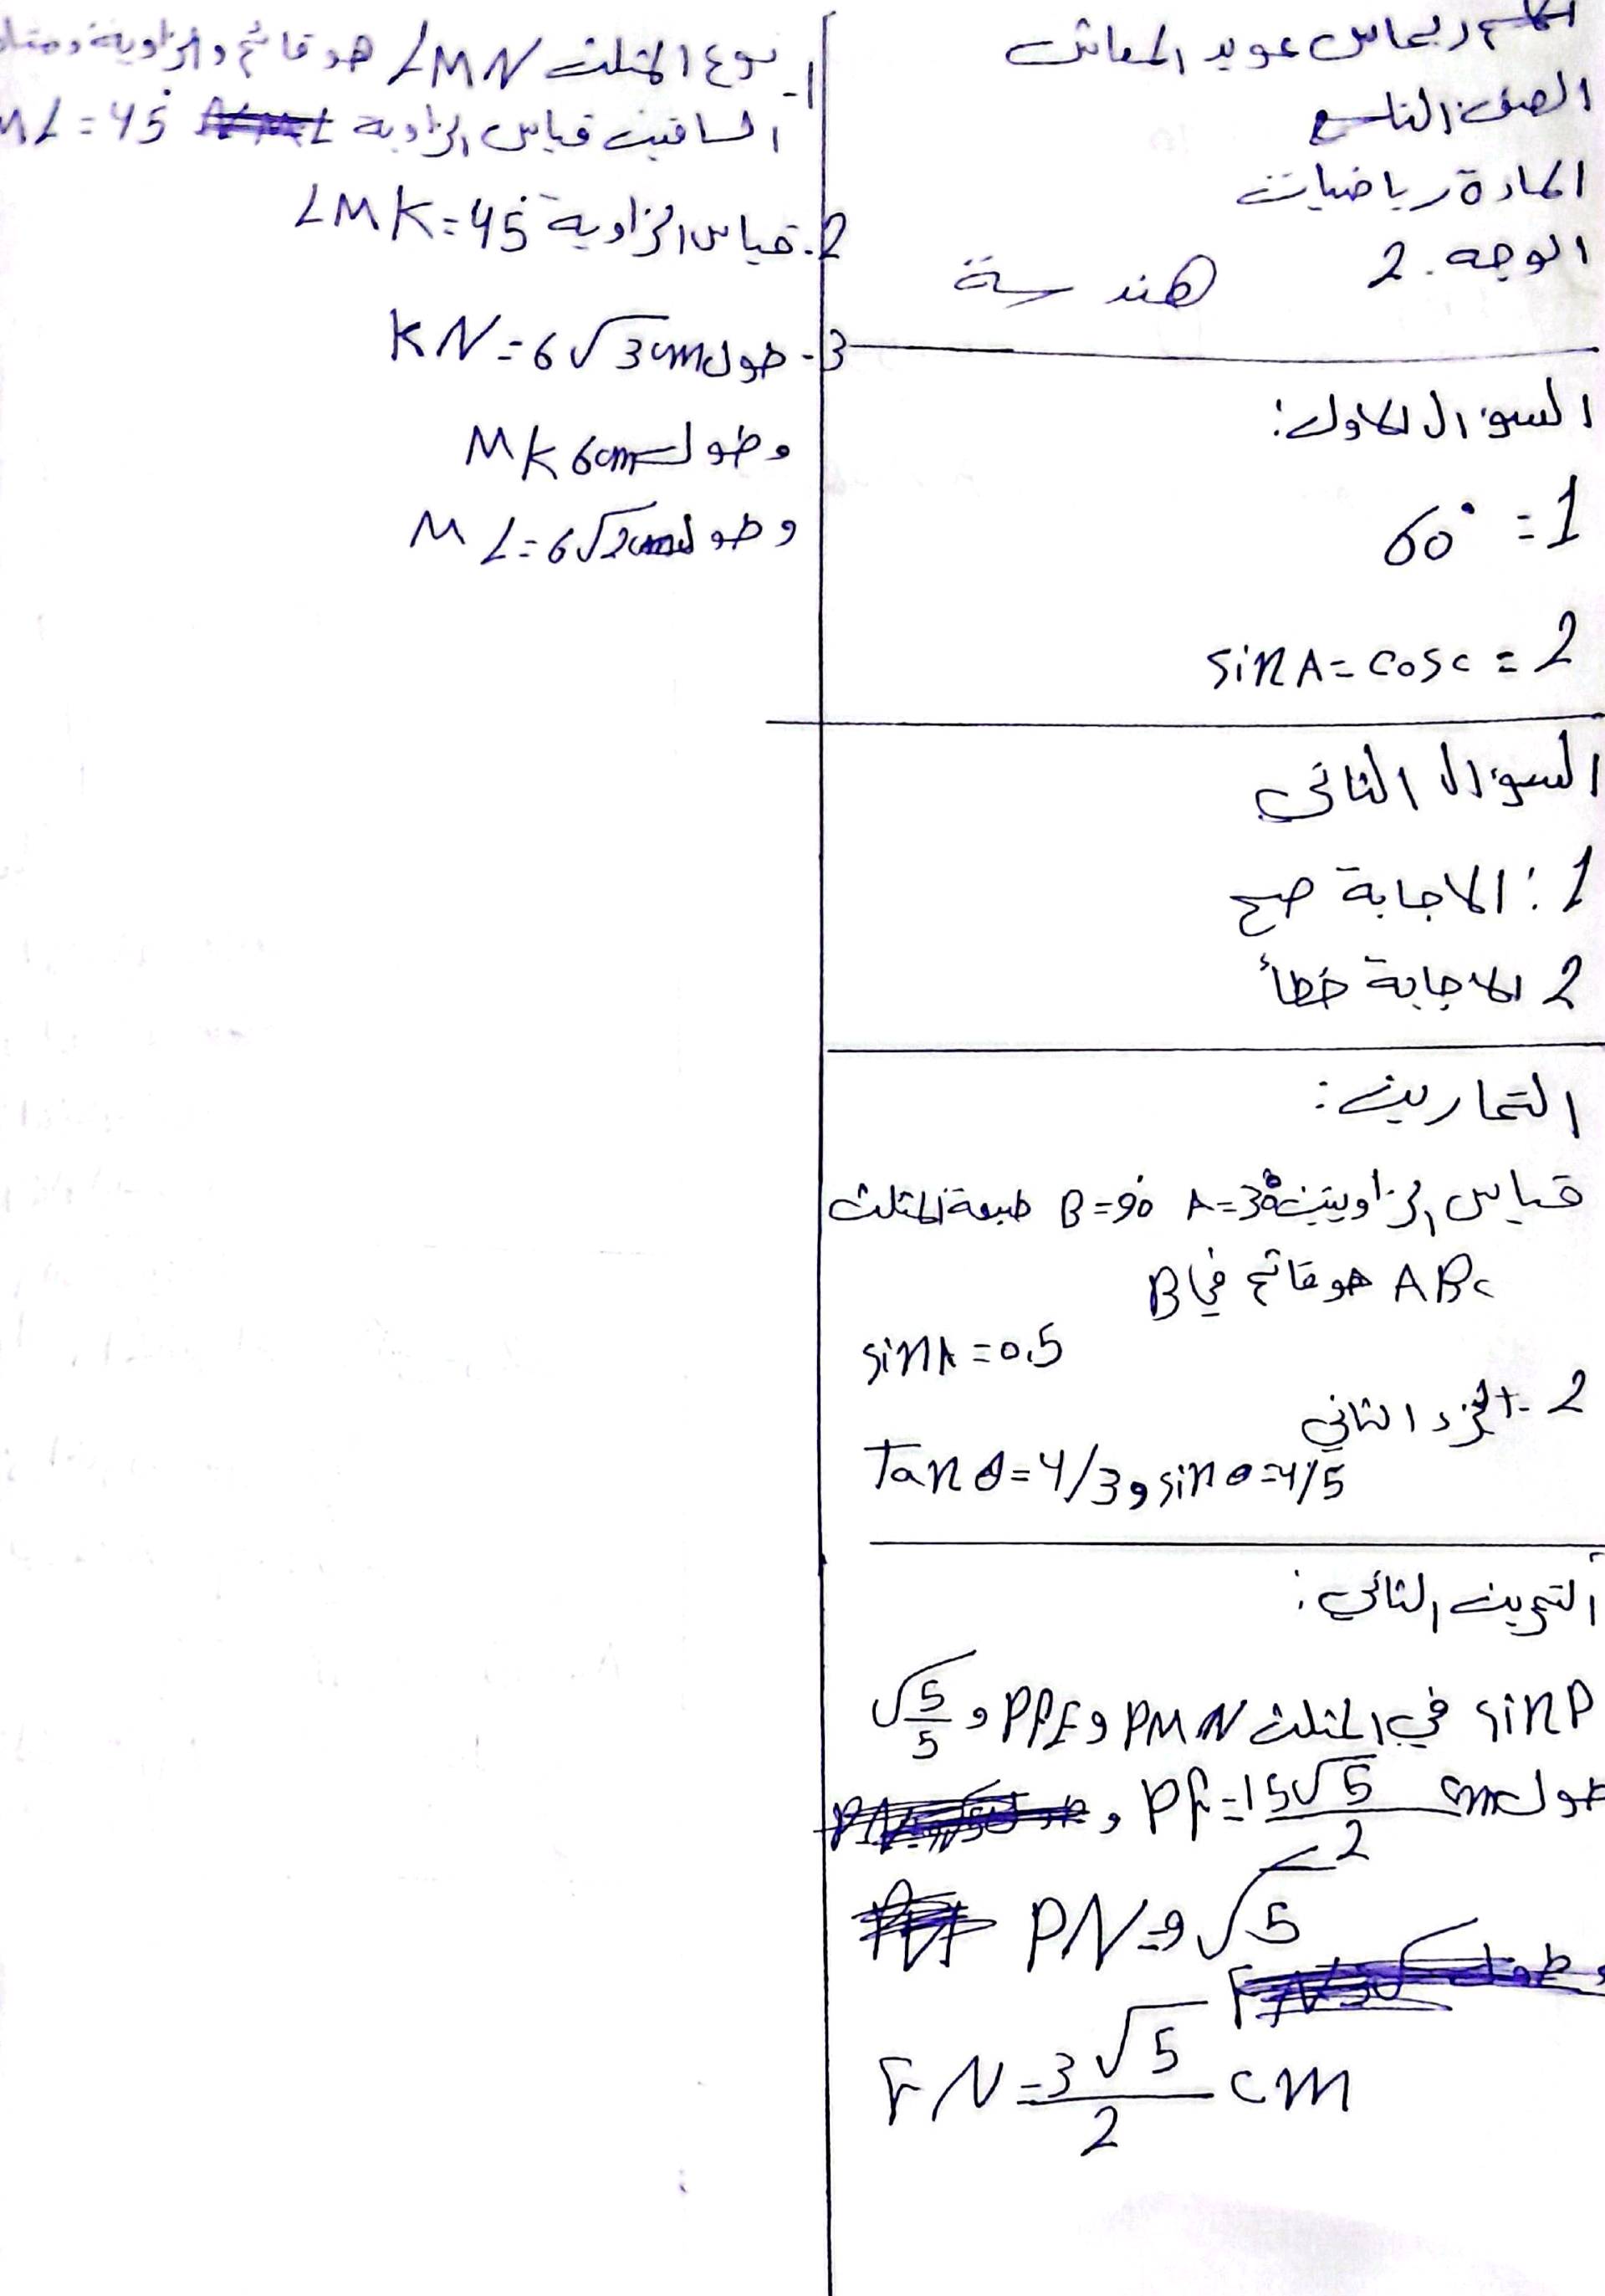 الاسم ريماس عويد المعاش
الصف التاسع
المادة رياضيات
الوجه. 2 هندسة
السوؤال الاول:
1= 60°
2= sinA=cosc
السوؤال الثاني
1: الاجابة صح
2 الاجابة خطأ
التمارين:
قياس الزاويتين A=30° B=90° طبيعة المثلث
ABc هو قائم في B
sinA=0.5
2- الجزء الثاني
Tanθ=4/3 و sinθ=4/5
التمرين الثاني:
sinP في المثلث PMN و PPF و √5/5
طول PF=15√5/2 cm و
PN=9√5
FN=3√5/2 cm
1- نوع المثلث LMN هو قائم الزاوية ومتساوي
الساقين قياس الزاوية ML=45°
2. قياس الزاوية LMK=45°
3- طول KN=6√3cm
وطول MK 6cm
وطول ML=6√2cm